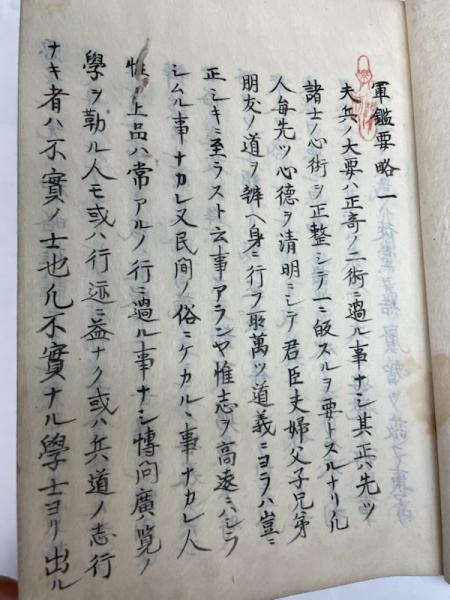 軍鑑要略一
夫兵ノ大要ハ正奇ノ二術ニ過ル事ナシ其正ハ先ツ
諸士ノ心術ヲ正整シテ一ニ皈スルヲ要トスルナリ凡
人毎先ツ心徳ヲ清明ニシテ君臣夫婦父子兄弟
朋友ノ道ヲ辨ヘ身ニ行フ所萬ツ道義ニヨラハ豈ニ
正シキニ至ラスト云事アランヤ惟志ヲ高遠ニハシラ
シムル事ナカレ又民間ノ俗ニケカルヽ事ナカレ人
性ノ上品ハ常アルノ行ニ過ル事ナシ博問廣覧ノ
學ヲ勤ル人モ或ハ行迹ニ益ナク或ハ兵道ノ志行
ナキ者ハ不實ノ士也凡不實ナル學士ヨリ出ル